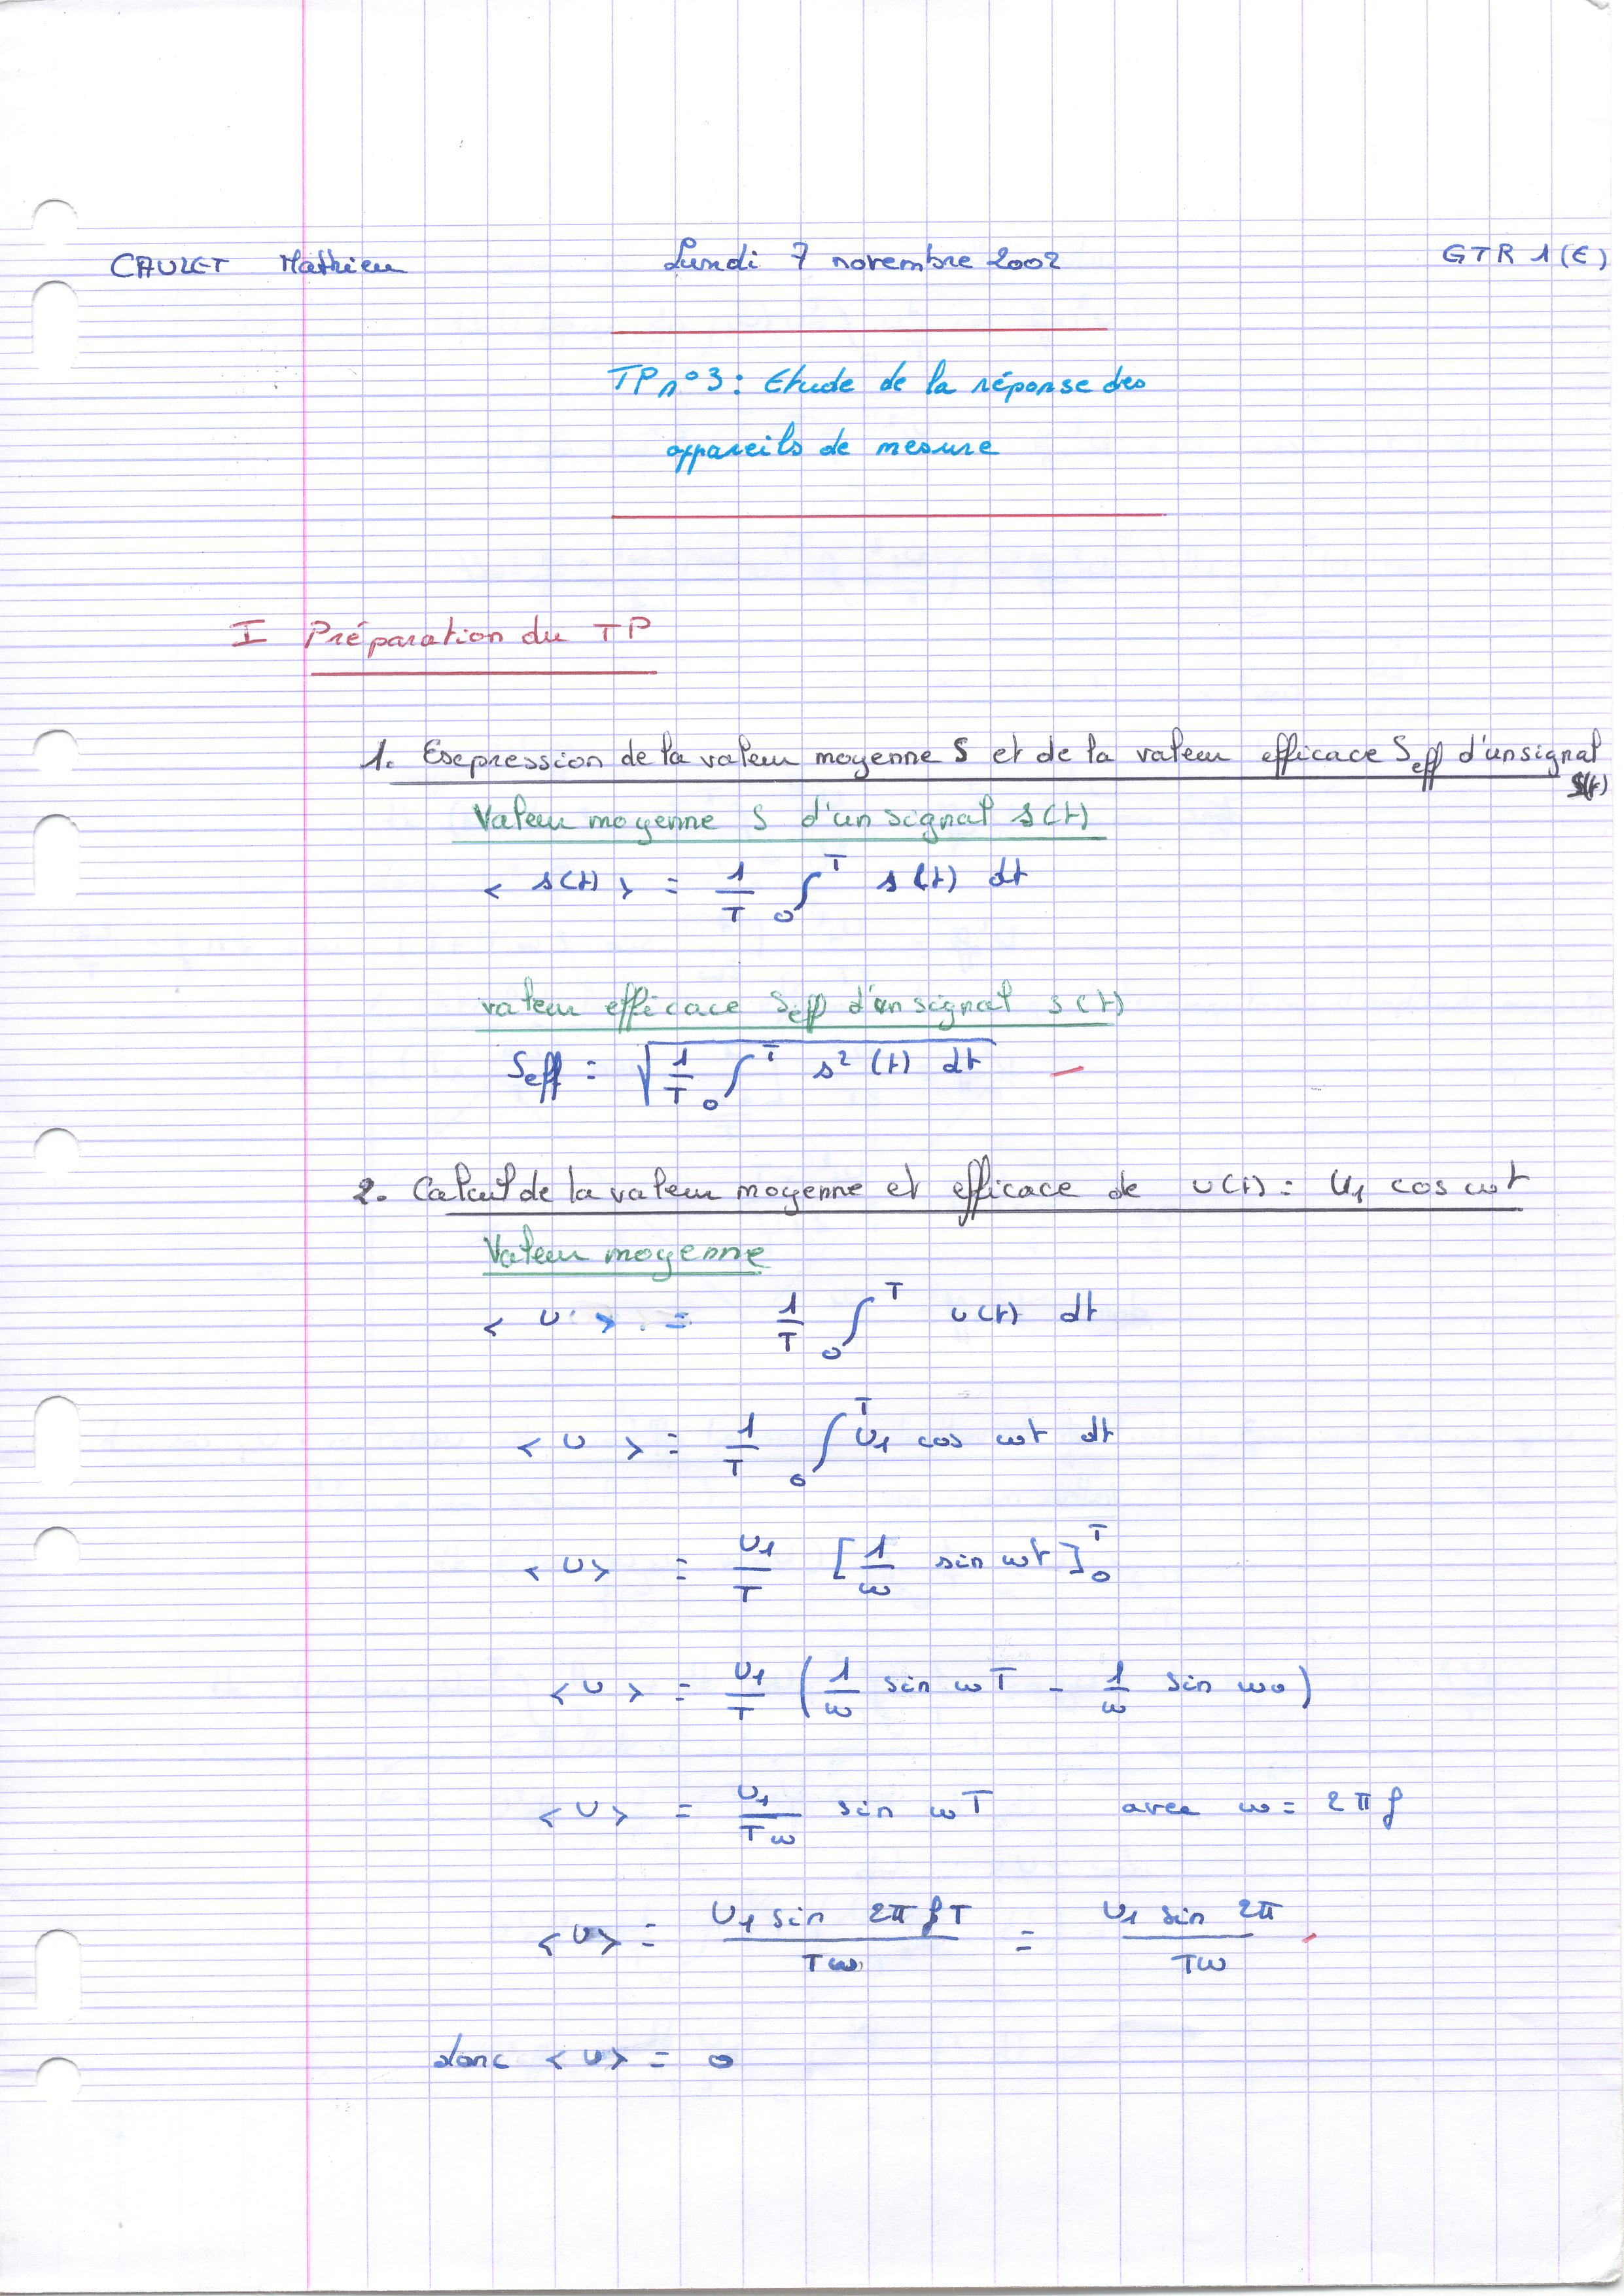 CAUZET Mathieu Lundi 7 novembre 2002 GTR 1 (E)
TP n°3 : Etude de la réponse des
appareils de mesure
I Préparation du TP
1. Expression de la valeur moyenne S et de la valeur efficace Seff d'un signal
S(t)
Valeur moyenne S d'un signal s(t)
< s(t) > = 1/T ∫₀ᵀ s(t) dt
valeur efficace Seff d'un signal s(t)
Seff = √(1/T ∫₀ᵀ s²(t) dt)
2. Calcul de la valeur moyenne et efficace de u(t) = U₁ cos ωt
Valeur moyenne
< U > = 1/T ∫₀ᵀ u(t) dt
< U > = 1/T ∫₀ᵀ U₁ cos ωt dt
< U > = U₁/T [1/ω sin ωt]₀ᵀ
< U > = U₁/T (1/ω sin ωT - 1/ω sin ω0)
< U > = U₁/Tω sin ωT avec ω = 2πf
< U > = U₁ sin 2π fT / Tω = U₁ sin 2π / Tω
donc < U > = 0